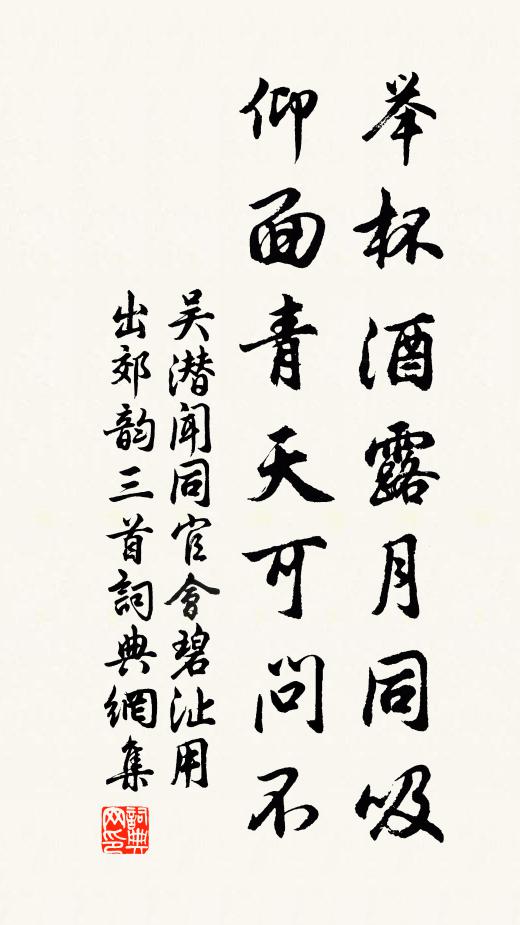 举杯酒露月同吸
仰面青天可问不
吴潜闻同官会碧沚用
出郊韵三首詞典網集
詞典
网印